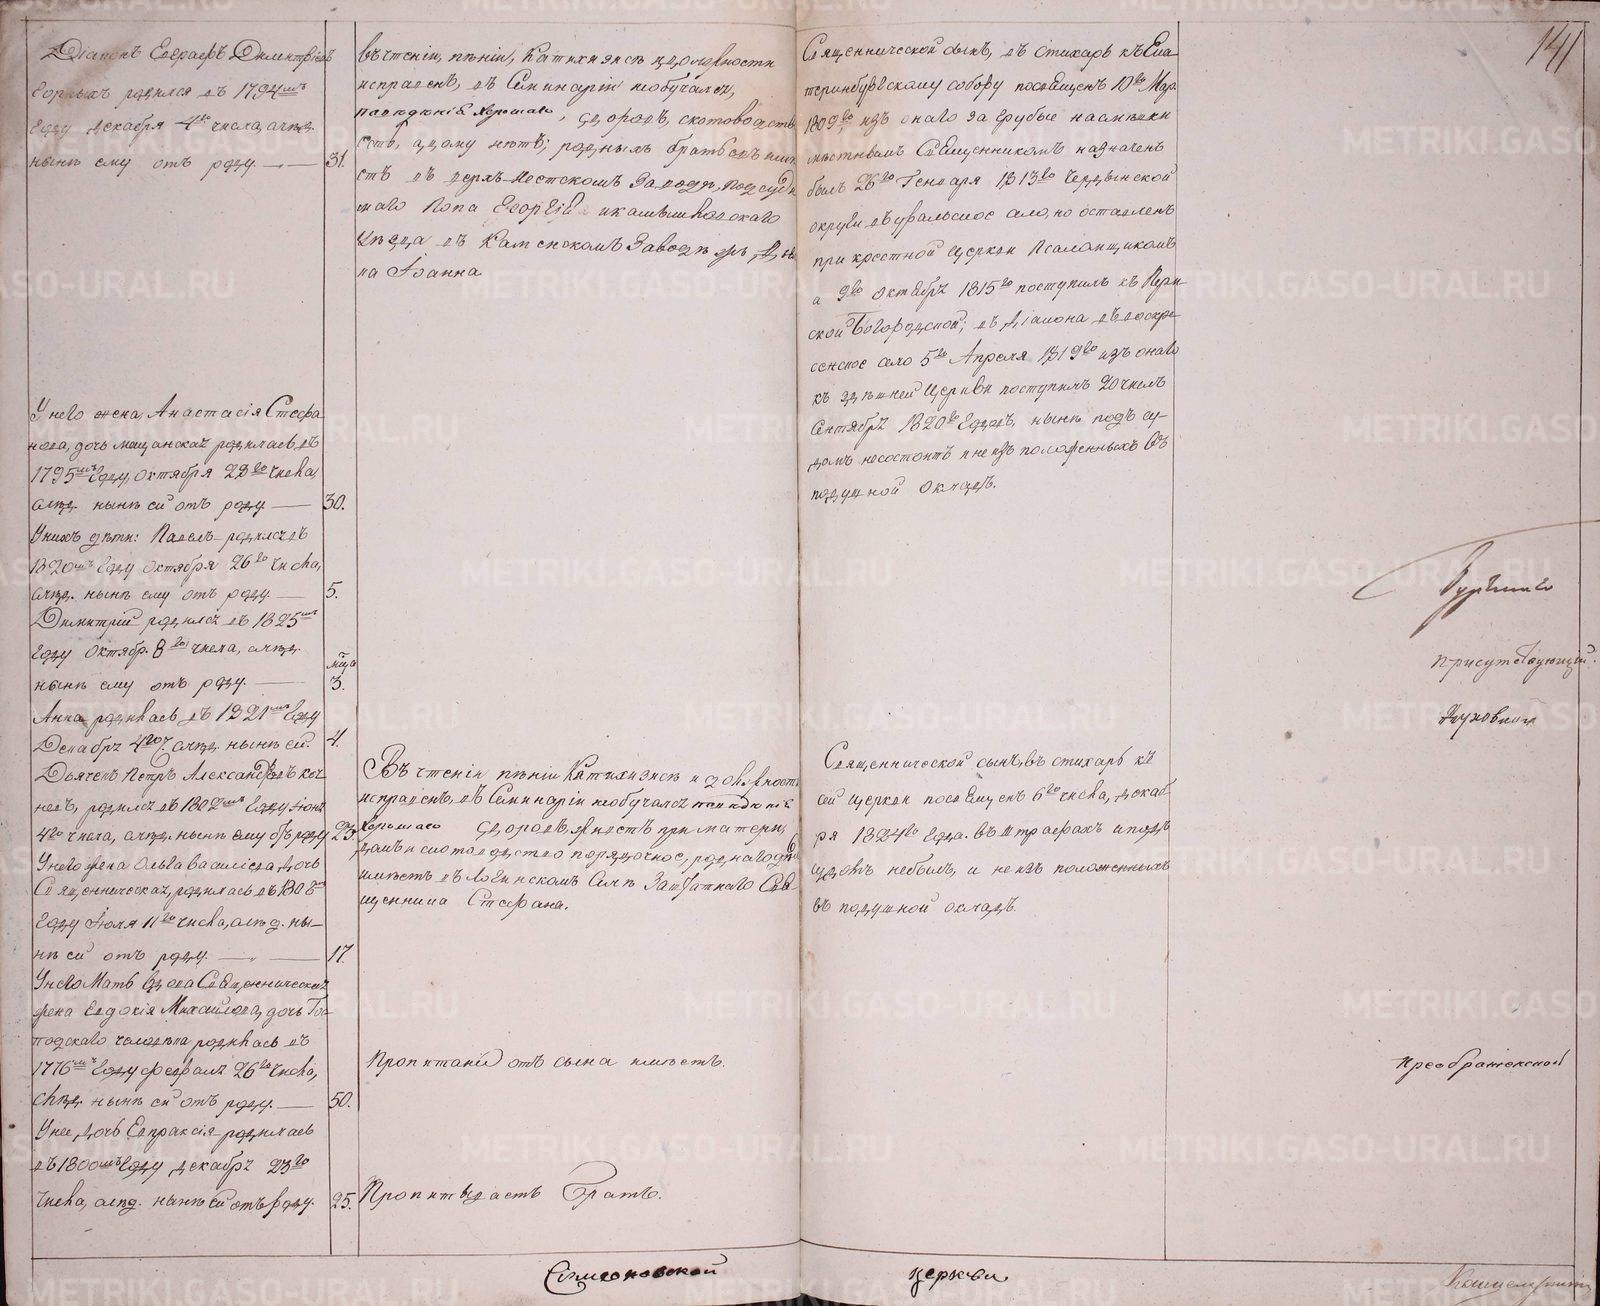 141
Діаконъ Евграфъ Димитріевъ
Горныхъ родился въ 1794мъ
Году Декабря 4го числа, а лѣтъ
нынѣ ему отъ роду — 31.
У него жена Анастасія Стефа
нова, дочь мѣщанская родилась въ
1795мъ Году Октября 28го числа,
а лѣтъ нынѣ ей отъ роду — 30.
У нихъ дѣти: Павелъ родился въ
1820мъ Году Октября 26го числа,
а лѣтъ нынѣ ему отъ роду — 5.
Димитрій родился въ 1825мъ
Году Октябр. 8го числа, а лѣтъ
нынѣ ему отъ роду — мца 3.
Анна родилась въ 1821мъ Году
Декабря 4го, а лѣтъ нынѣ ей. 4.
Дьячекъ Петръ Александровъ
родился въ 1802мъ Году Іюня
4го числа, а лѣтъ нынѣ ему отъ роду 23.
У него жена Ольга Василіева, дочь
Священническая, родилась въ 1808мъ
Году Іюля 11го числа, а лѣтъ ны-
нѣ ей отъ роду — 17.
У него Мать вдова Священническая
жена Евдокія Михайлова, дочь Гос
подскаго человѣка родилась въ
1776мъ Году Февраля 26го числа,
а лѣтъ нынѣ ей отъ роду — 50.
У нее дочь Евпраксія родилась
въ 1800мъ Году Декабря 23го
числа, а лѣтъ нынѣ ей отъ роду. 25.
въ чтеніи, пѣніи, Катихизисѣ и церковности
исправенъ, въ Семинаріи необучался,
поведенія хорошаго, здоровъ, скотоводство
есть, а дому нѣтъ; родныхъ братьевъ имѣ
етъ въ заводѣ, подсуди
маго Попа Георгія и Камышловскаго
Уѣзда въ Каменскомъ Заводѣ Діако
на Іоанна
Въ чтеніи пѣніи Катихизисѣ и церковности
исправенъ, въ Семинаріи необучался поведенія
хорошаго здоровъ, домъ есть при матери,
и скотоводство порядочное, роднаго дядю
имѣетъ въ Логиновскомъ Селѣ Заштатнаго Свя
щенника Стефана.
Пропитаніе отъ сына имѣетъ.
Пропитываетъ Братъ.
Священнической сынъ, въ стихарь къ Ека
теринбургскому собору посвященъ 10го Мар.
1809го, изъ онаго за грубые насмѣшки
мѣстнымъ Священникомъ назначенъ
былъ 26го Генваря 1813го Чердынской
округи въ Уральское село, но оставленъ
при крестной церкви Псаломщикомъ
а 9го Октября 1815го поступилъ къ Перм-
ской Богородской; въ Діакона въ воскре-
сенское село 5го Апреля 1819го изъ онаго
къ здѣшней Церкви поступилъ 20 числъ
Сентября 1820го Года, нынѣ подъ су-
домъ несостоитъ и не изъ положенныхъ въ
подушной окладъ.
Священнической сынъ, въ стихарь къ
сей церкви посвященъ 6го числа, декаб
ря 1824го Года. въ штрафахъ и подъ
судомъ небылъ, и не изъ положенныхъ
въ подушной окладъ.
Присутствующій
Духовной
Преображенской
Симеоновской церкви